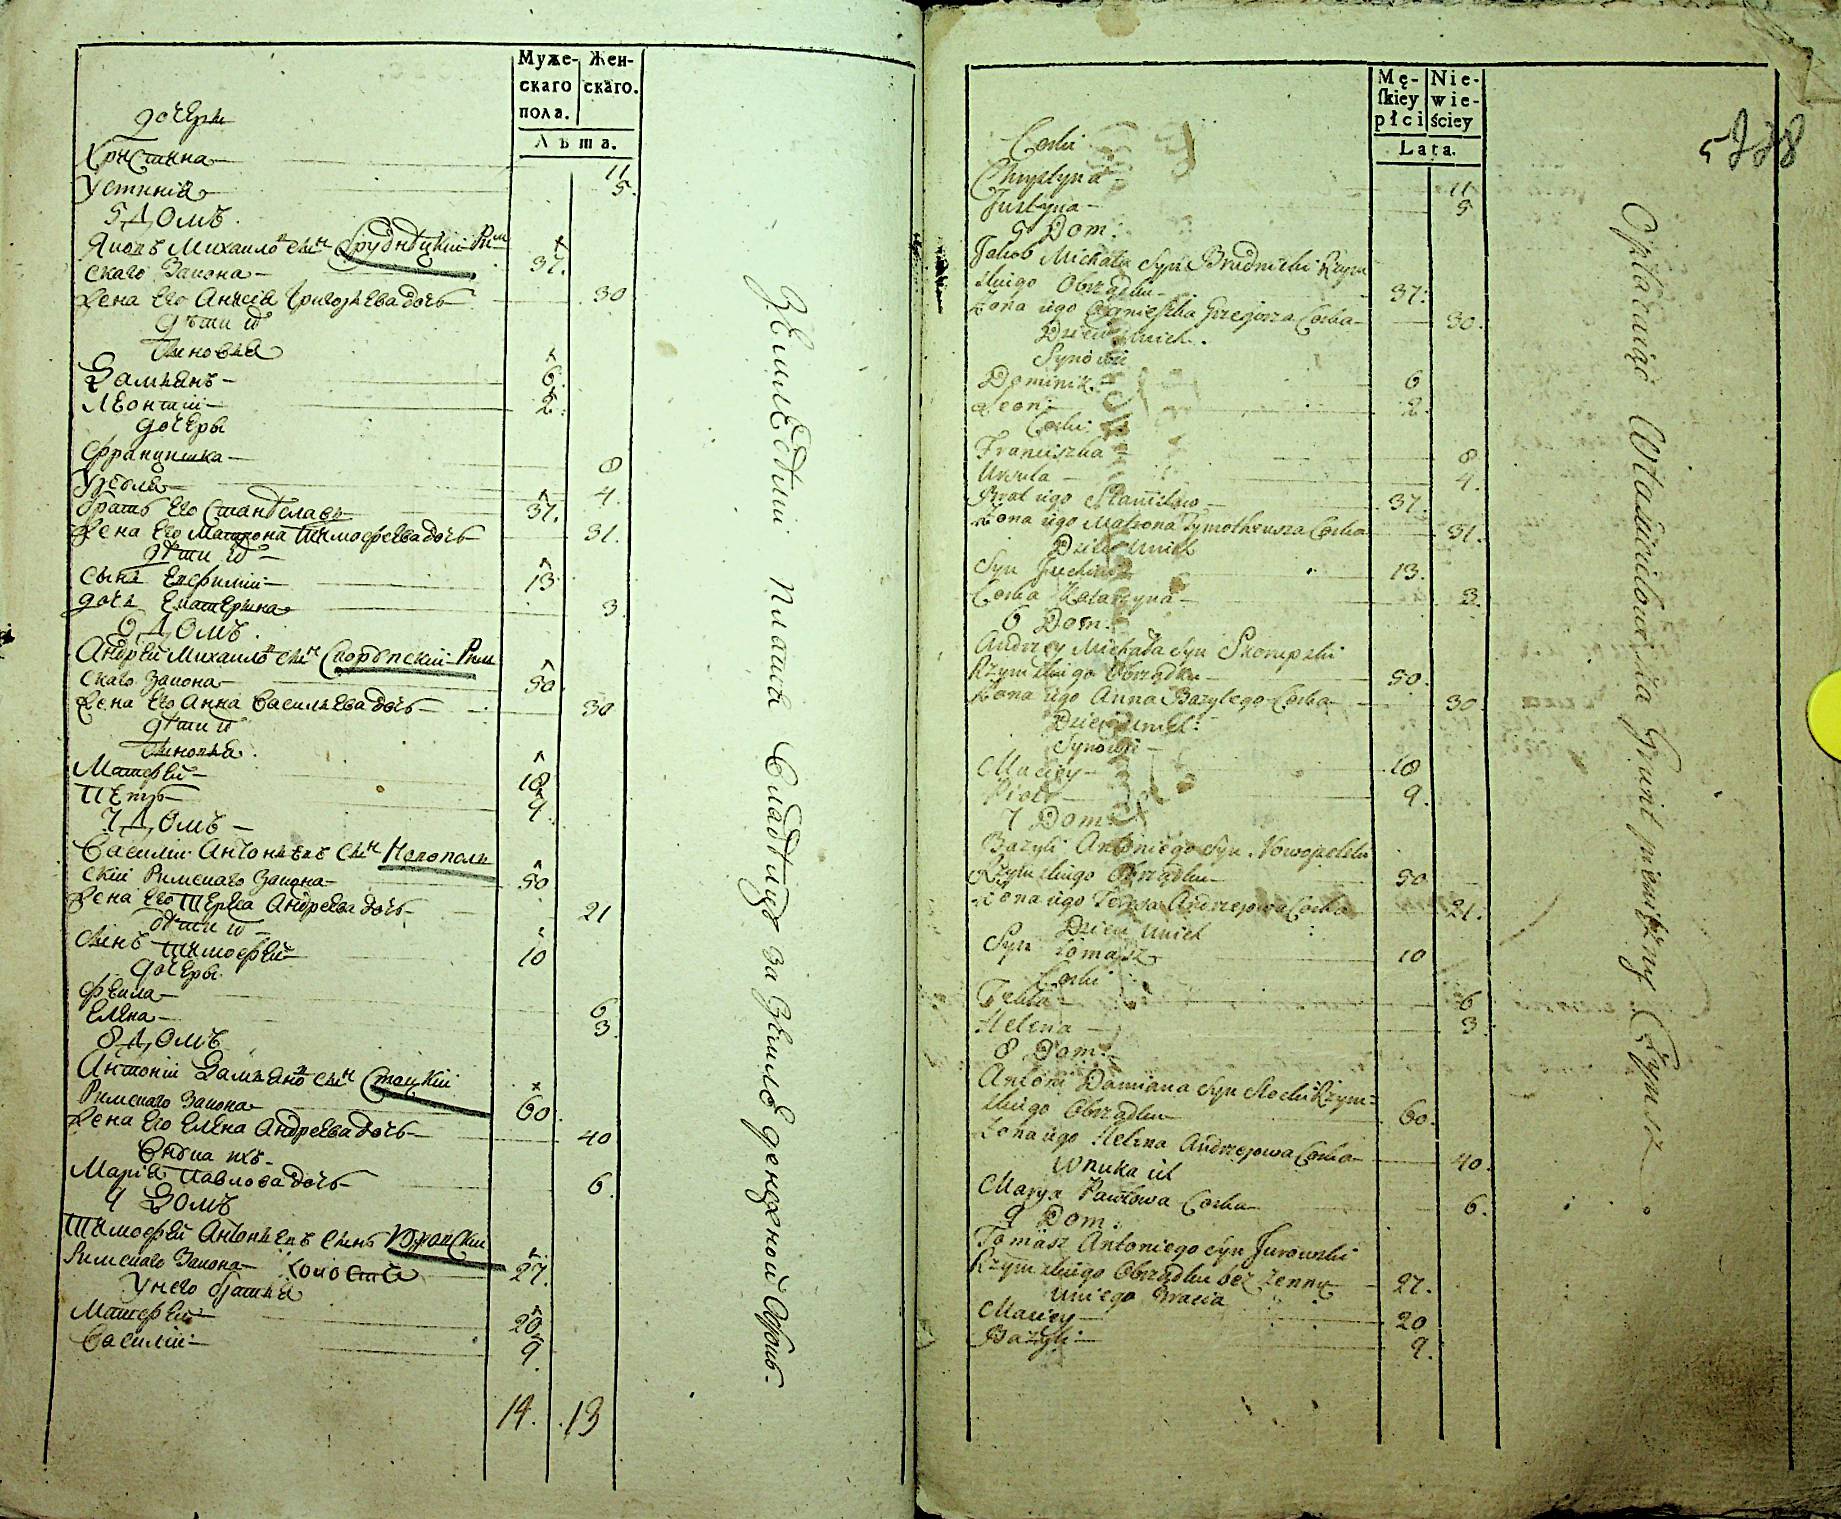 Муже-
скаго
пола.
Жен-
скаго.
Лѣта.
дочери
Христина — 11
Устинія — 5.
5 Домъ.
Яковъ Михайловъ сынъ Грудницкій Рим
скаго Закона — 37.
Жена Его Анисія Григорьева дочь — 30
дѣти ихъ
Сыновья
Дамианъ — 6.
Леонтій — 2.
дочеры
Францишка — 8
Урсула — 4.
братъ Его Станиславъ — 37.
Жена Его Матрона Тимофеева дочь — 31.
дѣти ихъ —
сынъ Евфимій — 13
дочь Екатерина — 3.
6 Домъ.
Андрей Михайловъ сынъ Скорупскій Рим
скаго Закона — 50
Жена Его Анна Васильева дочь — 30
дѣти ихъ
Сыновья.
Матфей — 18
Петръ — 9.
7 Домъ —
Василій Антоньевъ сынъ Новополь
скій Римскаго Закона — 50
Жена Его Тереса Андреева дочь — 21
дѣти ихъ —
Сынъ Тимофей — 10
дочеры.
Фекла — 6
Елена — 3.
8 Домъ
Антоній Даміановъ сынъ Стоцкій
Римскаго Закона — 60.
Жена Его Елена Андреева дочь — 40
Внука ихъ —
Марія Павлова дочь — 6.
9 Домъ
Тимофей Антоньевъ Сынъ Юровскій
Римскаго Закона — холостъ — 27.
У него братья
Матфей — 20
Василій — 9.
14. 13
за Землю денежной Оброкъ.
Mę-
ſkiey
płci
Nie-
wie-
ściey
Lata.
528
Corki
Chrystyna — 11
Justyna — 5
5 Dom.
Jakob Michała Syn Brudnicki Rzym
skiego Obrządku — 37.
Żona iego Agnieszka Grzegorza Corka — 30.
Dzieci onich.
Synowie
Dominik — 6
Leon — 2.
Corki.
Franciszka — 8
Ursula — 4.
Brat iego Stanisław — 37.
Żona iego Matrona Tymotheusza Corka — 31.
Dzieci Unich
Syn Juchim — 13.
Corka Katarzyna — 3.
6 Dom.
Andrzey Michała Syn Skorupski
Rzymskiego Obrządku — 50.
Żona iego Anna Bazylego Corka — 30.
Dzieci Unich.
Synowie —
Maciey — 18
Piotr — 9.
7 Dom
Bazyli Antoniego Syn Nowopolski
Rzymskiego Obrządku — 50
Żona iego Teresa Andrzejowa Corka — 21.
Dzieci Unich
Syn Tomasz — 10
Corki
Tekla — 6
Helena — 3
8 Dom.
Antoni Damiana Syn Stocki Rzym-
skiego Obrządku — 60.
Żona iego Helena Andrzejowa Corka — 40.
Wnuka ich
Marya Pawłowa Corka — 6.
9 Dom.
Tomasz Antoniego Syn Jurowski
Rzymskiego Obrządku bez Żenny — 27.
Uniego Bracia
Maciey — 20
Bazyli — 9.
Opłacaiąc Właścicielowi za Grunt pieniężny Czynsz